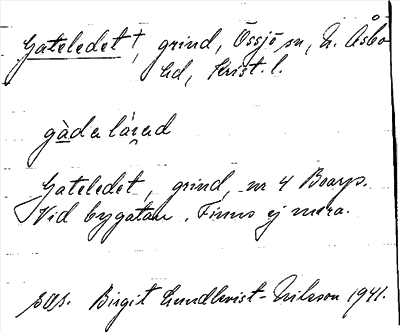 Gateledet †, grind, Össjö sn, N. Åsbo
hd, Krist. l.
gàda lá̱ꭇad
Gateledet, grind, nr 4 Boarp.
Vid bygatan. Finns ej mera.
Birgit Lundkvist-Nilsson 1941.